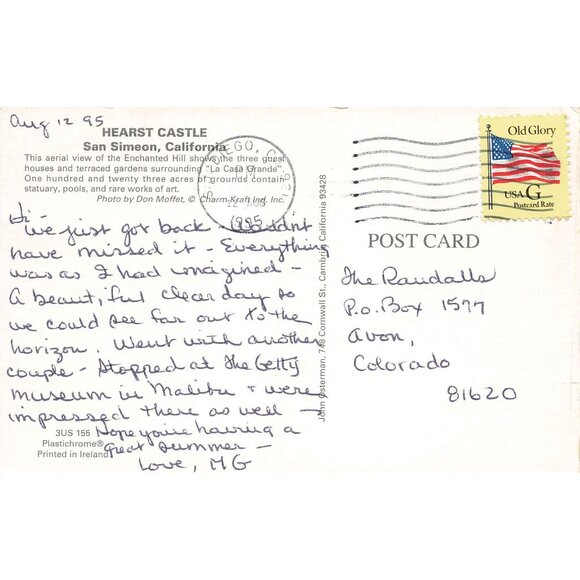 Aug 12 95
HEARST CASTLE
San Simeon, California
This aerial view of the Enchanted Hill shows the three guest
houses and terraced gardens surrounding "La Casa Grande".
One hundred and twenty three acres of grounds contain
statuary, pools, and rare works of art.
Photo by Don Moffet, © Charm Kraft Ind. Inc.
Hi-
We just got back - Wouldn't
have missed it - Everything
was as I had imagined -
A beautiful clear day so
we could see far out to the
horizon. Went with another
couple - Stopped at the Getty
museum in Malibu + were
impressed there as well -
Hope you're having a
great summer -
Love, MG
3US 155
Plastichrome®
Printed in Ireland
John Osterman, 748 Cornwall St., Cambria, California 93428
SAN DIEGO, CA
1995
Old Glory
USA G
Postcard Rate
POST CARD
The Randalls
P.O. Box 1577
Avon,
Colorado
81620